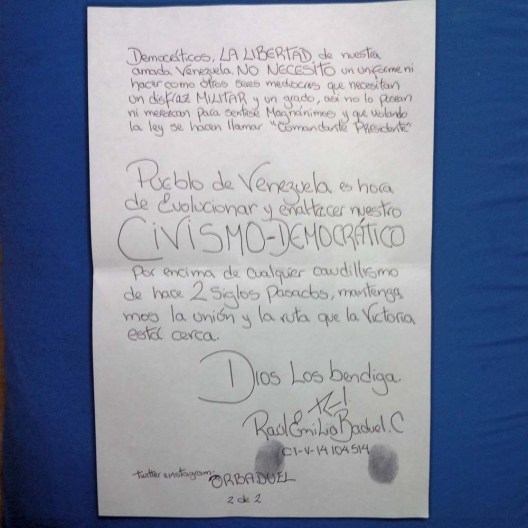 Democráticos, LA LIBERTAD de nuestra
amada Venezuela, NO NECESITO un uniforme ni
hacer como otros seres mediocres que necesitan
un disfraz MILITAR y un grado, así no lo posean
ni merezcan para sentirse Magnánimos y que violando
la ley se hacen llamar "Comandante Presidente"
Pueblo de Venezuela es hora
de Evolucionar y enaltecer nuestro
CIVISMO-DEMOCRÁTICO
Por encima de cualquier caudillismo
de hace 2 Siglos Pasados, mantenga
mos la unión y la ruta que la Victoria
está cerca.
Dios Los bendiga.
Raúl Emilio Baduel. C
CI-V-14104514
twitter e instagram:
ORBADUEL
2 de 2